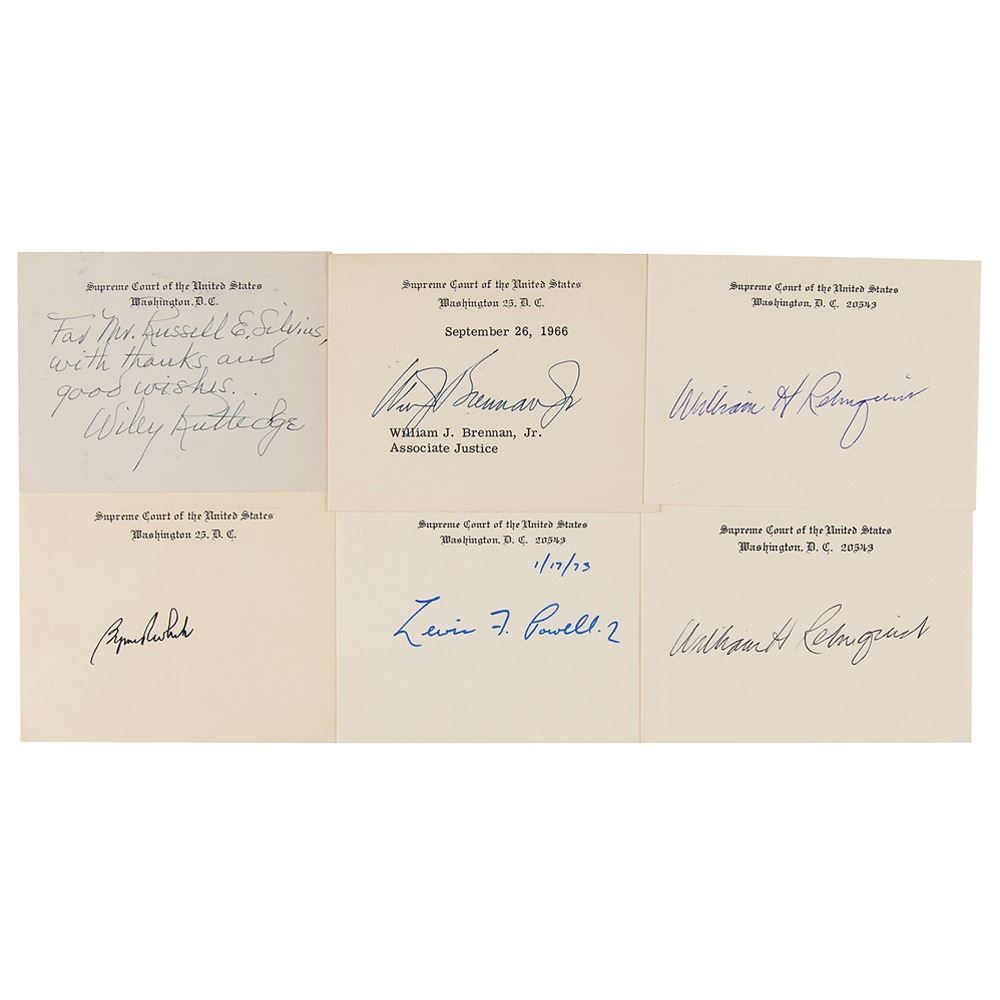 Supreme Court of the United States
Washington, D. C.
For Mr. Russell E. Silvius,
with thanks and
good wishes. .
Wiley Rutledge
Supreme Court of the United States
Washington 25, D. C.
September 26, 1966
Wm J Brennan Jr
William J. Brennan, Jr.
Associate Justice
Supreme Court of the United States
Washington, D. C. 20543
William H Rehnquist
Supreme Court of the United States
Washington 25, D. C.
Byron R White
Supreme Court of the United States
Washington, D. C. 20543
1/17/73
Lewis F. Powell. Jr
Supreme Court of the United States
Washington, D. C. 20543
William H Rehnquist